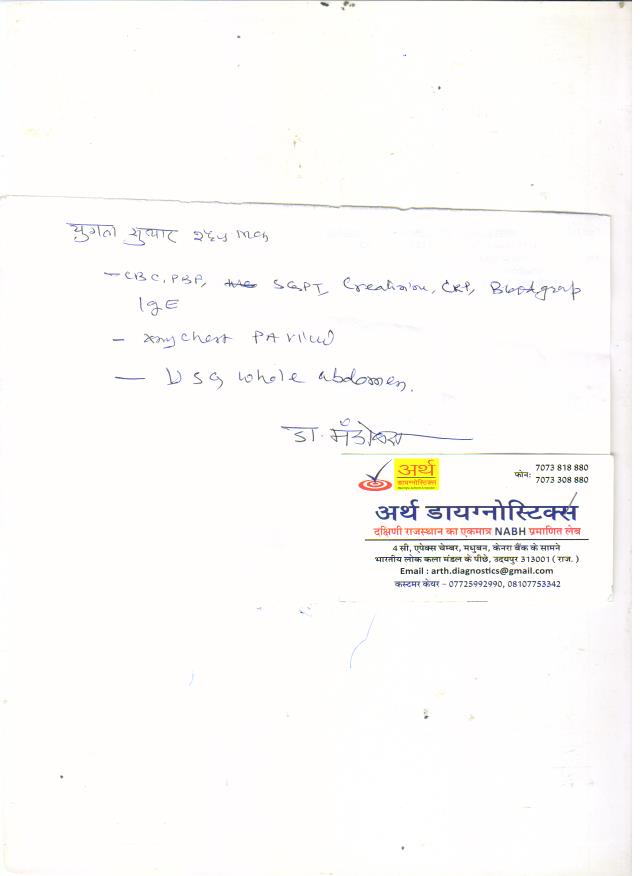 - CBC, PBF, SGPT, Creatinine, CRP, Blood group
IgE
- Xray chest PA view
- USG whole abdomen.
डा.
अर्थ
डायग्नोस्टिक्स
फोन: 7073 818 880
7073 308 880
अर्थ डायग्नोस्टिक्स
दक्षिणी राजस्थान का एकमात्र NABH प्रमाणित लेब
4 सी, एपेक्स चेम्बर, मधुबन, केनरा बैंक के सामने
भारतीय लोक कला मंडल के पीछे, उदयपुर 313001 ( राज. )
Email : arth.diagnostics@gmail.com
कस्टमर केयर - 07725992990, 08107753342